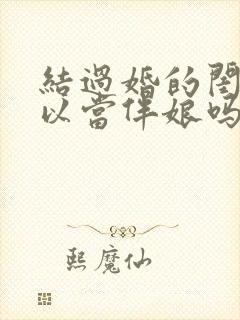 結過婚的閨
以當伴娘吗
熙魔仙